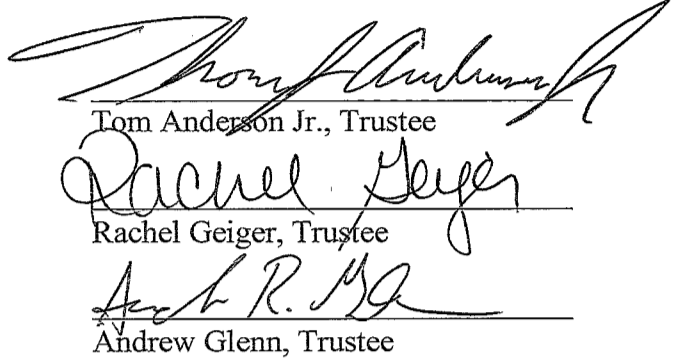 Thomas Anderson Jr
Tom Anderson Jr., Trustee
Rachel Geiger
Rachel Geiger, Trustee
R.
Andrew Glenn, Trustee